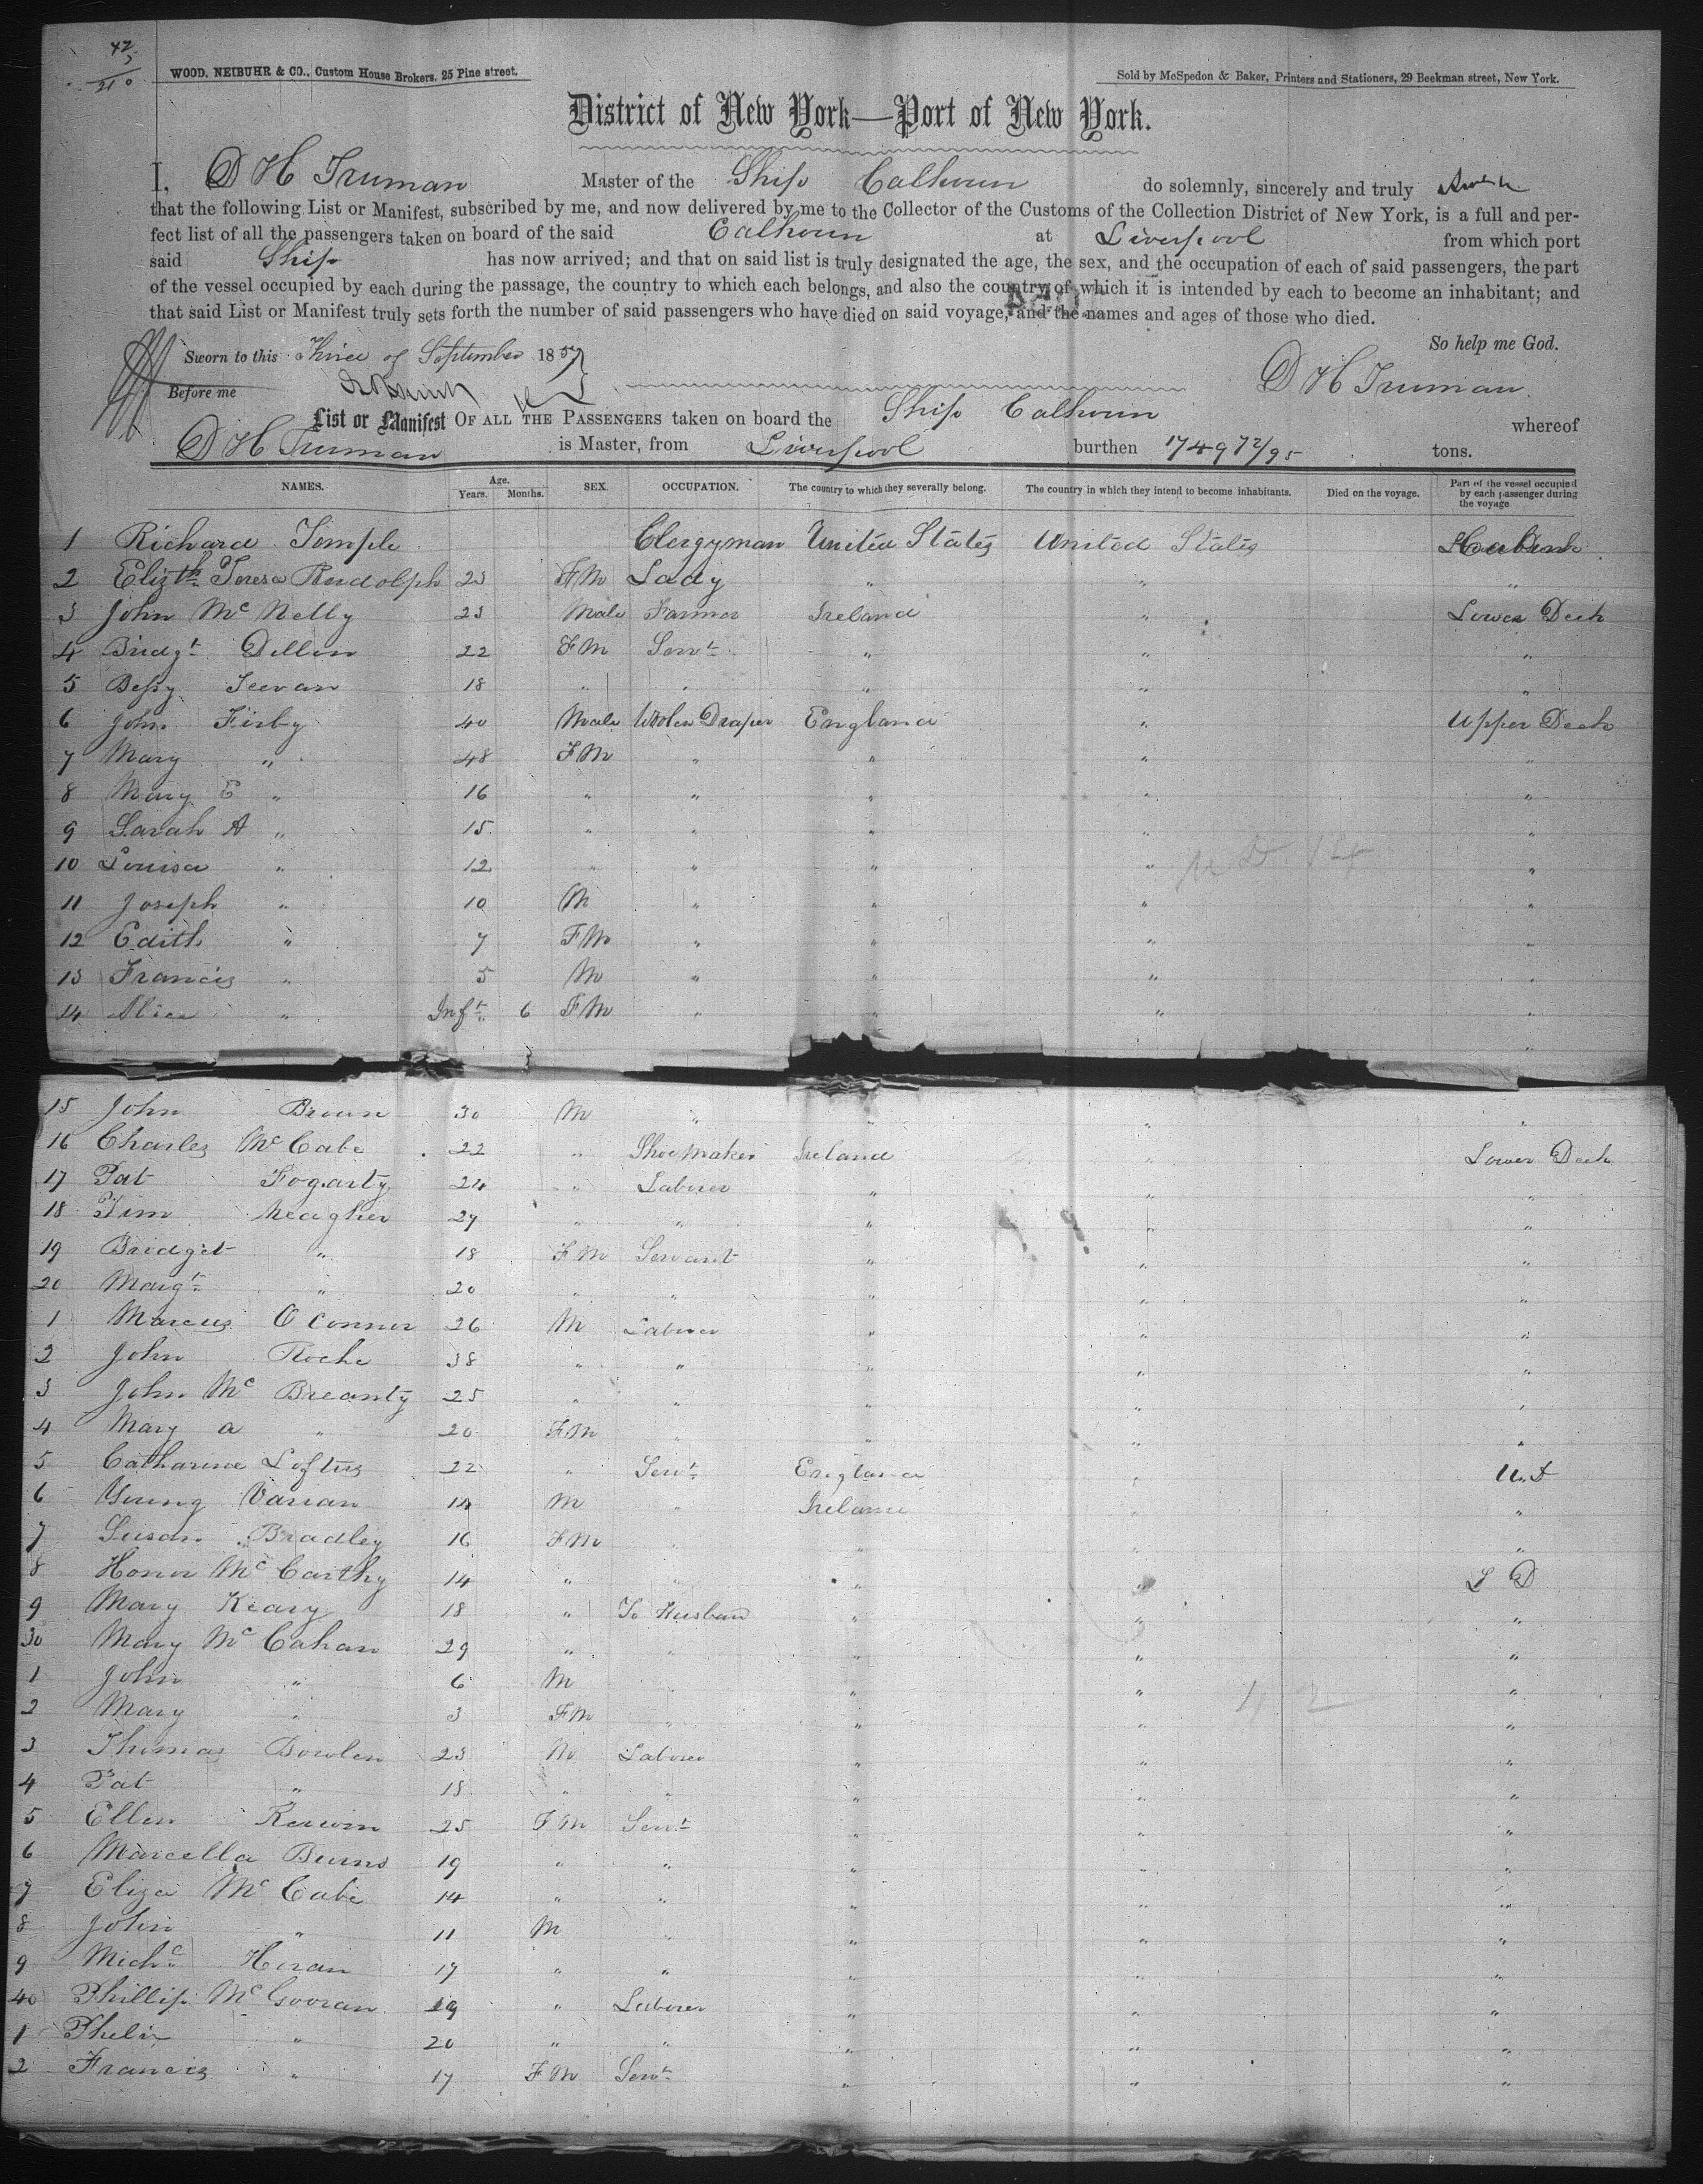 42
5
210
WOOD, NEIBUHR & CO., Custom House Brokers, 25 Pine street.
Sold by McSpedon & Baker, Printers and Stationers, 29 Beekman street, New York.
District of New York—Port of New York.
I, D H Truman Master of the Ship Calhoun do solemnly, sincerely and truly
that the following List or Manifest, subscribed by me, and now delivered by me to the Collector of the Customs of the Collection District of New York, is a full and per-
fect list of all the passengers taken on board of the said Calhoun at Liverpool from which port
said Ship has now arrived; and that on said list is truly designated the age, the sex, and the occupation of each of said passengers, the part
of the vessel occupied by each during the passage, the country to which each belongs, and also the country of which it is intended by each to become an inhabitant; and
that said List or Manifest truly sets forth the number of said passengers who have died on said voyage, and the names and ages of those who died.
So help me God.
Sworn to this Three of September 1857
D H Truman
Before me
List or Manifest OF ALL THE PASSENGERS taken on board the Ship Calhoun whereof
D H Truman is Master, from Liverpool burthen 1749 72/95 tons.
NAMES. Age. Years. Months. SEX. OCCUPATION. The country to which they severally belong. The country in which they intend to become inhabitants. Died on the voyage. Part of the vessel occupied by each passenger during the voyage
1 Richard Temple Clergyman United States United States Cabin
2 Elizth Teresa Rudolph 23 FM Lady " " "
3 John Mc Nelly 23 Male Farmer Ireland " Lower Deck
4 Bridgt Dillon 22 FM Servt " " "
5 Bessy Teevan 18 " " " " "
6 John Firby 40 Male Woolen Draper England " Upper Deck
7 Mary " 48 FM " " " "
8 Mary E " 16 " " " " "
9 Sarah A " 15 " " " " "
10 Louisa " 12 " " " " "
11 Joseph " 10 M " " " "
12 Edith " 7 FM " " " "
13 Francis " 5 M " " " "
14 Alice " Inft 6 FM " " " "
15 John Brown 30 M " " " "
16 Charles Mc Cabe 22 " Shoe Maker Ireland " Lower Deck
17 Pat Fogarty 24 " Laborer " " "
18 Tim Meagher 27 " " " " "
19 Bridget " 18 FM Servant " " "
20 Margt " 20 " " " " "
1 Marcus O Connor 26 M Laborer " " "
2 John Roche 38 " " " " "
3 John Mc Breanty 25 " " " " "
4 Mary a " 20 FM " " " "
5 Catharine Loftus 22 " Servt England " U.D
6 Young Varian 14 M " Ireland " "
7 Susan Bradley 16 FM " " " "
8 Honor Mc Carthy 14 " " " " L D
9 Mary Keary 18 " To Husband " " "
30 Mary Mc Cahan 29 " " " " "
1 John " 6 M " " " "
2 Mary " 3 FM " " " "
3 Thomas Bowlen 23 M Laborer " " "
4 Pat " 18 " " " " "
5 Ellen Kerwin 25 FM Servt " " "
6 Marcella Burns 19 " " " " "
7 Eliza Mc Cabe 14 " " " " "
8 John " 11 M " " " "
9 Michc Horan 17 " " " " "
40 Phillip Mc Gooran 29 " Laborer " " "
1 Phelix " 20 " " " " "
2 Francis " 17 FM Servt " " "